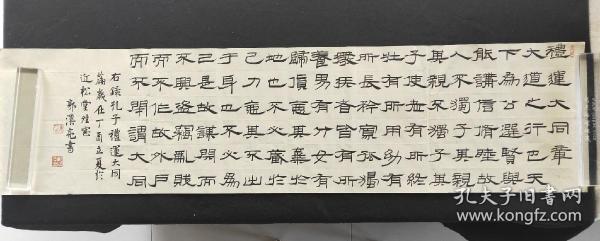 禮運大同章
大道之行也天
下為公選賢與
能講信修睦故
人不獨其親
其親不獨子其
子使老有所終
壯有所用幼有
所長矜寡孤獨
廢疾者皆有所
養男有分女有
歸貨惡其棄於
地也不必藏於
己力惡其不出
于身也不必為
己是故謀閉而
不興盜竊亂賊
而不作故外戶
而不閉謂大同
右錄孔子禮運大同
篇歲在丁酉立夏於
近松堂燈窗
郭漢書
孔夫子旧書网
www.kongfz.com